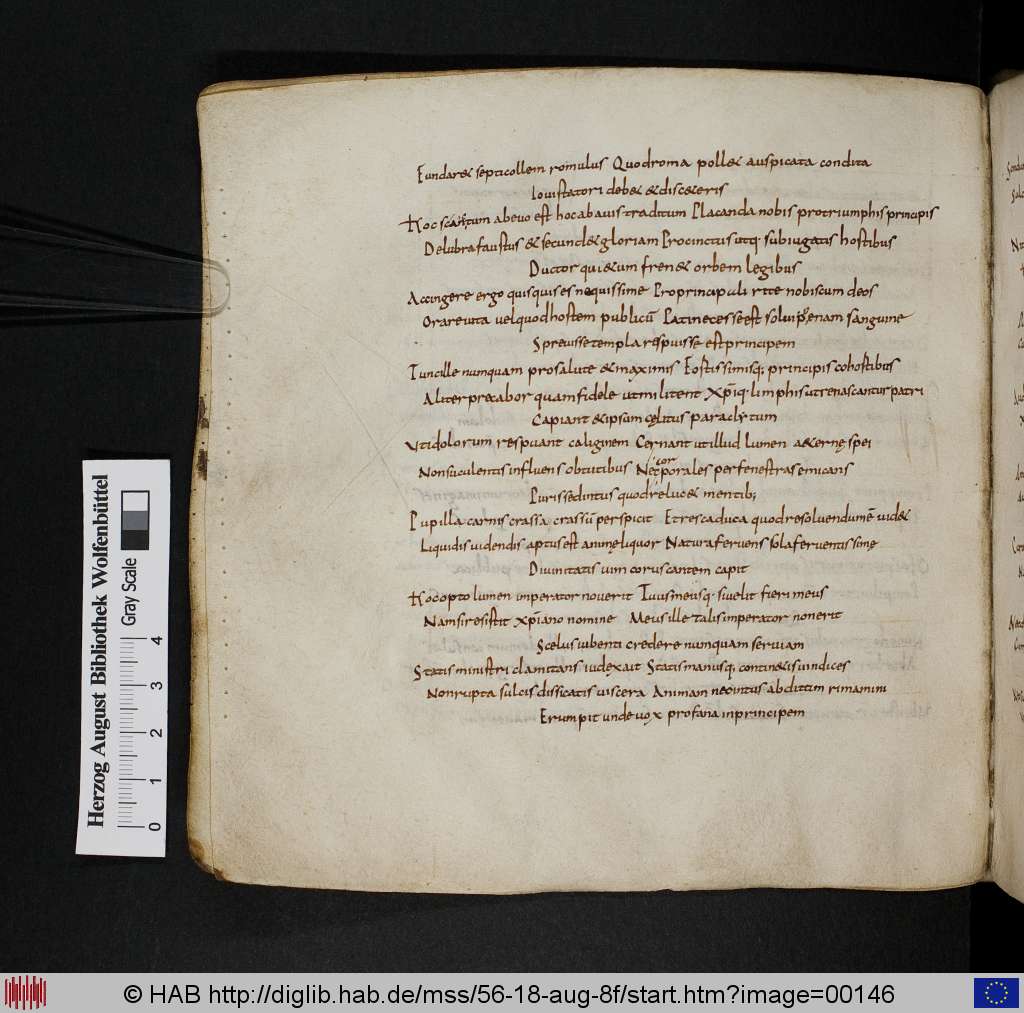 Fundaret septicollem romulus Quodroma pollet auspicata condita
Iouistatori debet et disceteris
Hoc sanctum abeuo est hoc abauis traditum Placanda nobis protriumphis principis
Delubra faustus et secundet gloriam Procinctus utq. subiugatis hostibus
Ductor quietum frenet orbem legibus
Accingere ergo quisquis es nequissime Pro principali rite nobiscum deos
Orare uita uel quod hostem publicū Pati necesse est soluere poenam sanguine
Spreuisse templa respuisse est principem
Tunc ille numquam prosalute et maximis Fostissimisq; principis cohostibus
Aliter precabor quam fidele ut militent xp̄iq. limphis ut renascantur patri
Capiant et ipsum cęlitus paraclytum
Ut idolorum respuant caliginem Cernant ut illud lumen aeternę spei
Non suculentis influens obtutibus Nec corporales per fenestras emicans
Puris sed intus quod relucet mentib;
Pupilla carnis crassa crassū perspicit Et res caduca quod resoluendum ē uidet
Liquidis uidendis aptus est animę liquor Natura feruens sola feruentissimę
Diuinitatis uim coruscantem capit
Hoc opto lumen imperator nouerit Tuus meusq. si uelit fieri meus
Nam si resistit xp̄iano nomine Meus ille talis imperator non erit
Scelus iubenti credere numquam seruiam
Statis ministri clamitans iudex ait Statis manusq. continetis uindices
Non rupta sulcis dissicatis uiscera Animam nec intus abditum rimamini
Erumpit unde uox profana in principem
Herzog August Bibliothek Wolfenbüttel
Gray Scale
0 1 2 3 4
© HAB http://diglib.hab.de/mss/56-18-aug-8f/start.htm?image=00146